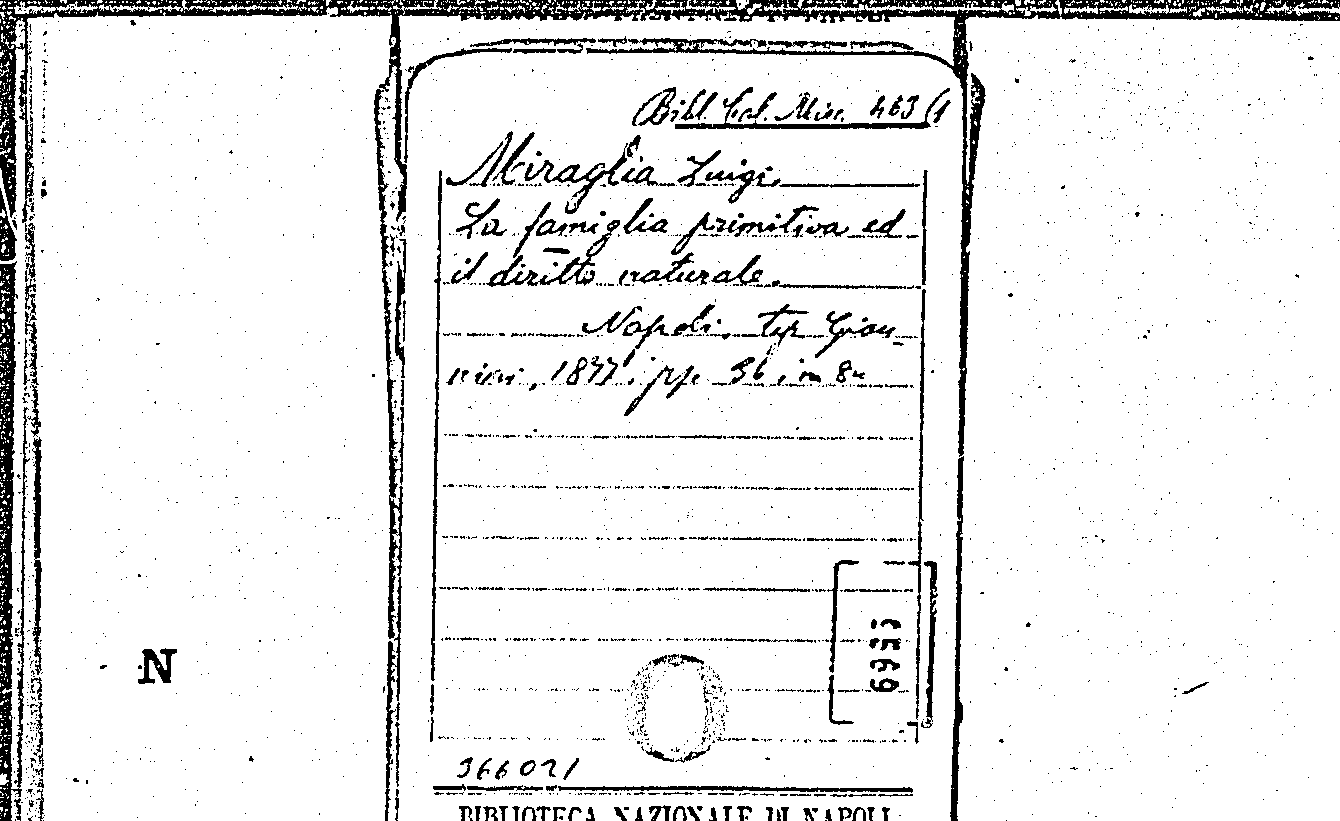 Bibl. Col. Misc. 463 (1
Miraglia Luigi.
La famiglia primitiva ed
il diritto naturale.
Napoli, tip Gian-
nini, 1877; pp. 36, in 8º
N
366021
BIBLIOTECA NAZIONALE DI NAPOLI